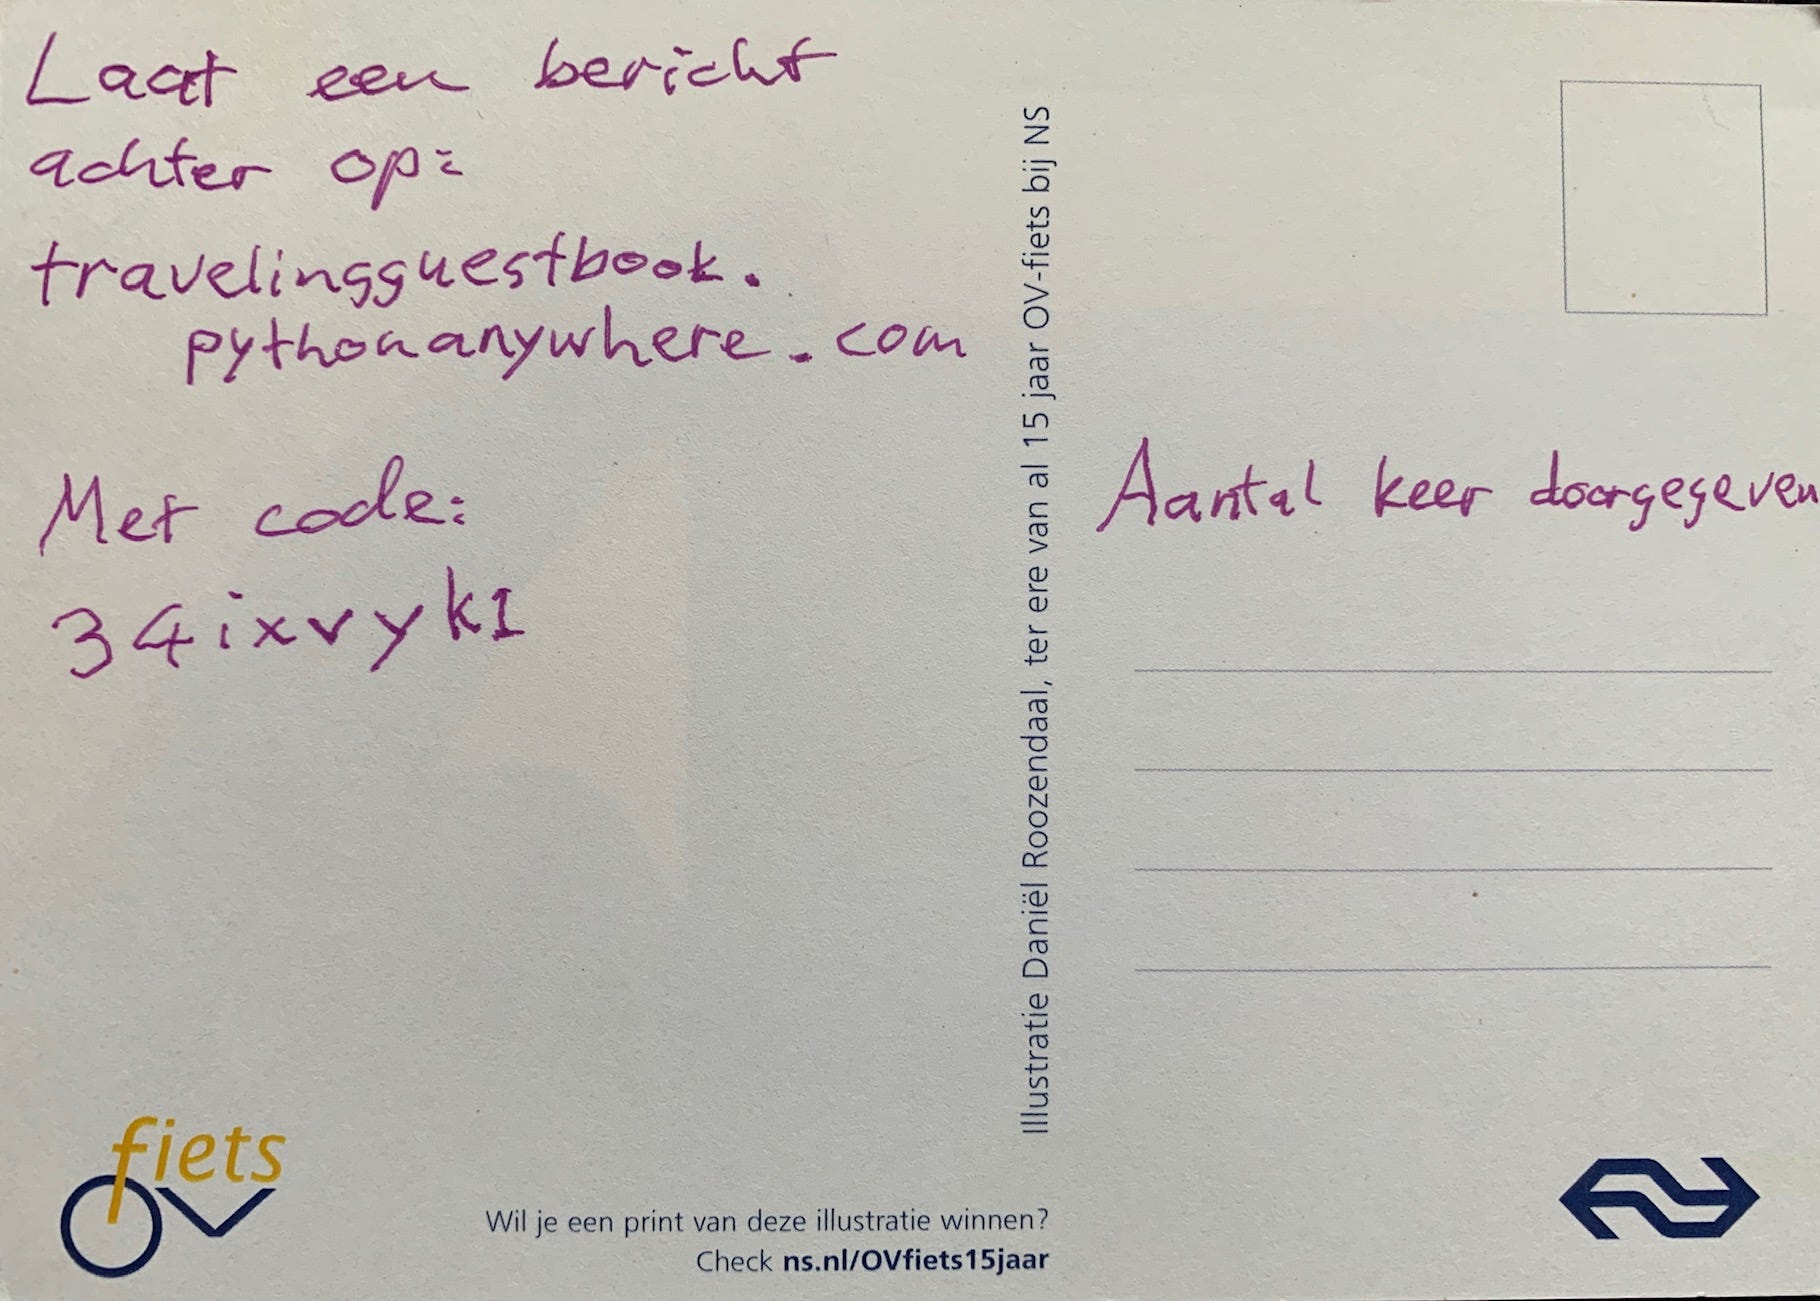 Laat een bericht
achter op:
travelingguestbook.
pythonanywhere.com
Met code:
34ixvyk1
Illustratie Daniël Roozendaal, ter ere van al 15 jaar OV-fiets bij NS
Aantal keer doorgegeven
OV fiets
Wil je een print van deze illustratie winnen?
Check ns.nl/OVfiets15jaar